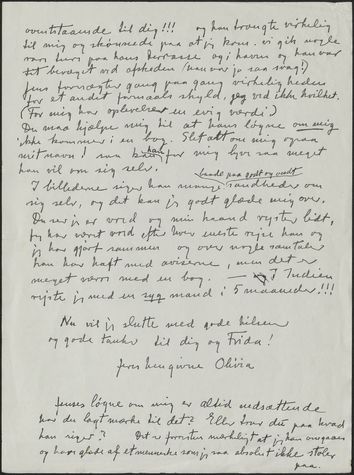 ovenstaaende til dig!!! og han trængte virkelig
til mig og skønnede paa at jeg kom. vi gik nogle
ture paa hans terrasse og i havn og han var
let bevæget ved afskeden han var jo saa svag!)
Jens forvansker gang paa gang virkeligheden
for et andet formaals skyld, jeg ved ikke hvilket.
(For mig har oplevelsen en evig værdi)
Du maa hjælpe mig til at hans løgne om mig
ikke kommer i en bog. Slet at om mig ogsaa
mit navn! han for mig lyve saa meget
han vil om sig selv. baade paa godt og ondt
I billederne siger han mange sandheder om
sig selv, og det kan jeg godt glæde mig over.
Du ser jeg er vred og min haand ryster lidt,
jeg har været vred efter hver eneste rejse han og
jeg har gjort sammen og over nogle samtaler
han har haft med aviserne, men det er
meget værre med en bog. — I Indien
rejste jeg med en syg mand i 5 maaneder!!!
Nu vil jeg slutte med gode hilsen
og gode tanker til dig og Frida!
Jens hengivne Olivia
Jenses løgne om mig er altid nedsættende
har du lagt mærke til det? Eller tror du paa hvad
han siger? Det er forresten mærkeligt at jeg kan omgaaes
og have glæde af et menneske som jeg saa absolut ikke stoler
paa.